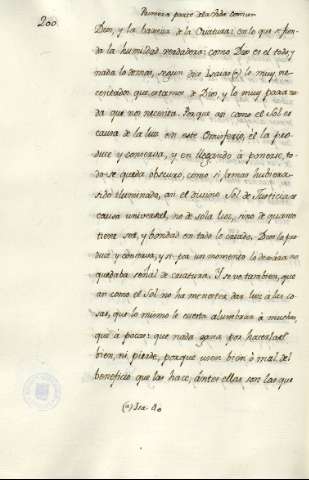 200
Primera parte de la Orden comun
Dios, y la baxeza de la Criatura: en lo que se fun-
da la humildad verdadera: como Dios es el todo, y
nada lo demas, segun dice Isaias (a) lo muy ne-
cesitados que estamos de Dios, y lo muy para na-
da que nos necesita. Porque asi como el Sol es
causa de la luz en este Emisferio, el la pro-
duce y conserva, y en llegando à ponerse, to-
do se queda obscuro, como si jamas hubiera
sido iluminado, asi el divino Sol de Justicia es
causa universal, no de sola luz, sino de quanto
tiene ser, y bondad en todo lo criado. Dios lo pro-
duce y conserva, y si por un momento lo dexára, no
quedaba señal de criatura. Y se ve tambien, que
asi como el Sol no ha menester dar luz à las co-
sas, que lo mismo le cuesta alumbrar à muchas,
que à pocas: que nada gana por hacerlas
bien, ni pierde, porque usen bien ò mal del
beneficio que las hace, ántes ellas son las que
(a) Isa. 40